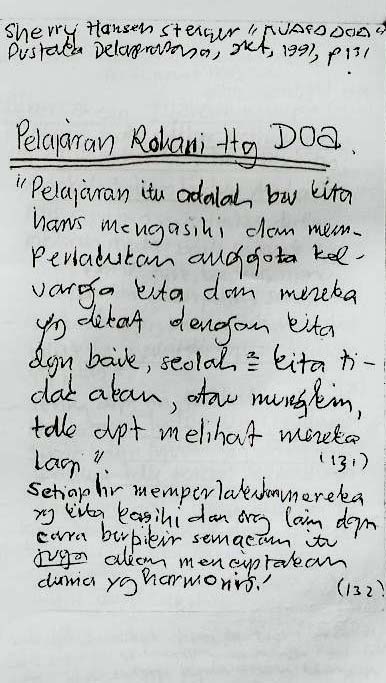 Sherry Hansen Steiger "KUASA DOA"
Pustaka Delapratasa, Jkt, 1997, p 131
Pelajaran Rohani ttg DOA.
"Pelajaran itu adalah bw kita
harus mengasihi dan mem-
perlakukan anggota kel-
uarga kita dan mereka
yg dekat dengan kita
dgn baik, seolah ² kita ti-
dak akan, atau mungkin,
tdk dpt melihat mereka
lagi".
(131)
Setiap hr memperlakukan mereka
yg kita kasihi dan org lain dgn
cara berpikir semacam itu
juga akan menciptakan
dunia yg harmonis!
(132)